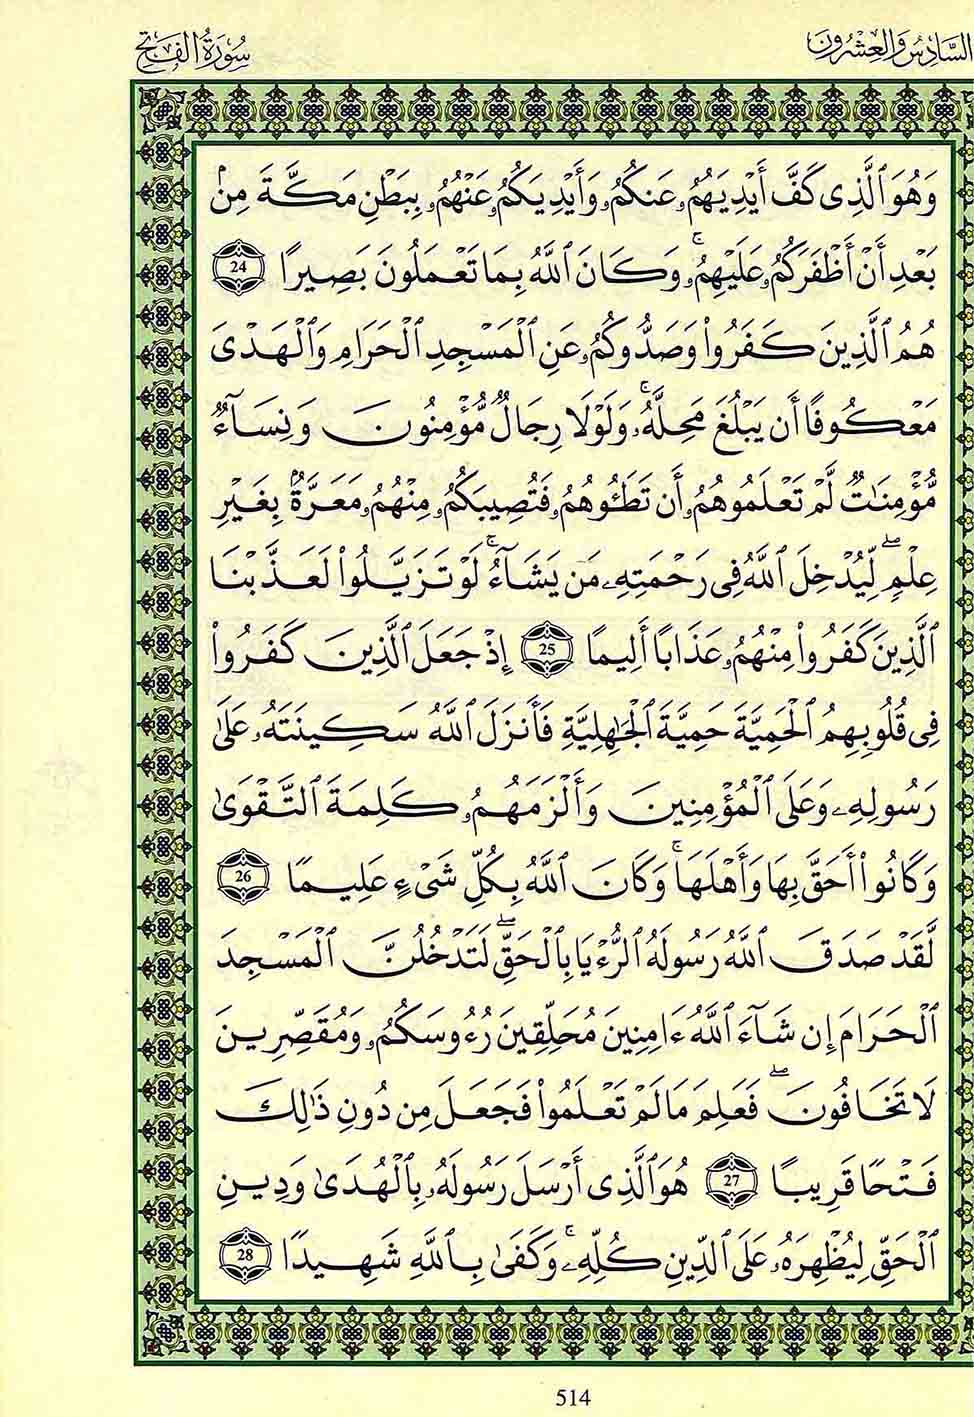 السَّادِسُ وَالْعِشْرُونَ
سُورَةُ الْفَتْحِ
وَهُوَ ٱلَّذِى كَفَّ أَيْدِيَهُمُۥ عَنكُمُۥ وَأَيْدِيَكُمُۥ عَنْهُمُۥ بِبَطْنِ مَكَّةَ مِنۢ
بَعْدِ أَنْ أَظْفَرَكُمُۥ عَلَيْهِمُۥۚ وَكَانَ ٱللَّهُ بِمَا تَعْمَلُونَ بَصِيرًا 24
هُمُ ٱلَّذِينَ كَفَرُوا۟ وَصَدُّوكُمُۥ عَنِ ٱلْمَسْجِدِ ٱلْحَرَامِ وَٱلْهَدْىَ
مَعْكُوفًا أَن يَبْلُغَ مَحِلَّهُۥۚ وَلَوْلَا رِجَالٌ مُّؤْمِنُونَ وَنِسَآءٌ
مُّؤْمِنَـٰتٌ لَّمْ تَعْلَمُوهُمُۥ أَن تَطَـُٔوهُمُۥ فَتُصِيبَكُمُۥ مِنْهُمُۥ مَعَرَّةٌۢ بِغَيْرِ
عِلْمٍۖ لِّيُدْخِلَ ٱللَّهُ فِى رَحْمَتِهِۦ مَن يَشَآءُۚ لَوْ تَزَيَّلُوا۟ لَعَذَّبْنَا
ٱلَّذِينَ كَفَرُوا۟ مِنْهُمُۥ عَذَابًا أَلِيمًا 25 إِذْ جَعَلَ ٱلَّذِينَ كَفَرُوا۟
فِى قُلُوبِهِمُ ٱلْحَمِيَّةَ حَمِيَّةَ ٱلْجَـٰهِلِيَّةِ فَأَنزَلَ ٱللَّهُ سَكِينَتَهُۥ عَلَىٰ
رَسُولِهِۦ وَعَلَى ٱلْمُؤْمِنِينَ وَأَلْزَمَهُمُۥ كَلِمَةَ ٱلتَّقْوَىٰ
وَكَانُوٓا۟ أَحَقَّ بِهَا وَأَهْلَهَاۚ وَكَانَ ٱللَّهُ بِكُلِّ شَىْءٍ عَلِيمًا 26
لَّقَدْ صَدَقَ ٱللَّهُ رَسُولَهُ ٱلرُّءْيَا بِٱلْحَقِّۖ لَتَدْخُلُنَّ ٱلْمَسْجِدَ
ٱلْحَرَامَ إِن شَآءَ ٱللَّهُ ءَامِنِينَ مُحَلِّقِينَ رُءُوسَكُمُۥ وَمُقَصِّرِينَ
لَا تَخَافُونَۖ فَعَلِمَ مَا لَمْ تَعْلَمُوا۟ فَجَعَلَ مِن دُونِ ذَٰلِكَ
فَتْحًا قَرِيبًا 27 هُوَ ٱلَّذِى أَرْسَلَ رَسُولَهُۥ بِٱلْهُدَىٰ وَدِينِ
ٱلْحَقِّ لِيُظْهِرَهُۥ عَلَى ٱلدِّينِ كُلِّهِۦۚ وَكَفَىٰ بِٱللَّهِ شَهِيدًا 28
514